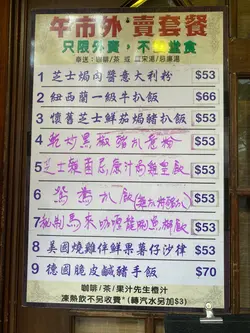 午市外賣套餐
只限外賣，不設堂食
奉送：咖啡/茶 或 羅宋湯/忌廉湯
1 芝士焗肉醬意大利粉 $53
2 紐西蘭一級牛扒飯 $66
3 懷舊芝士鮮茄焗豬扒飯 $53
4 乾炒黑椒豬扒意粉 $53
5 芝士雜菌忌廉汁肉雞皇飯 $53
6 鴛鴦扒飯 $53
7 秘制馬來咖喱龍脷魚柳飯 $53
8 美國燒雞伴鮮果薯仔沙律 $53
9 德國脆皮鹹豬手飯 $70
咖啡/茶/果汁先生橙汁
凍熱飲不另收費*(轉汽水另加$3)